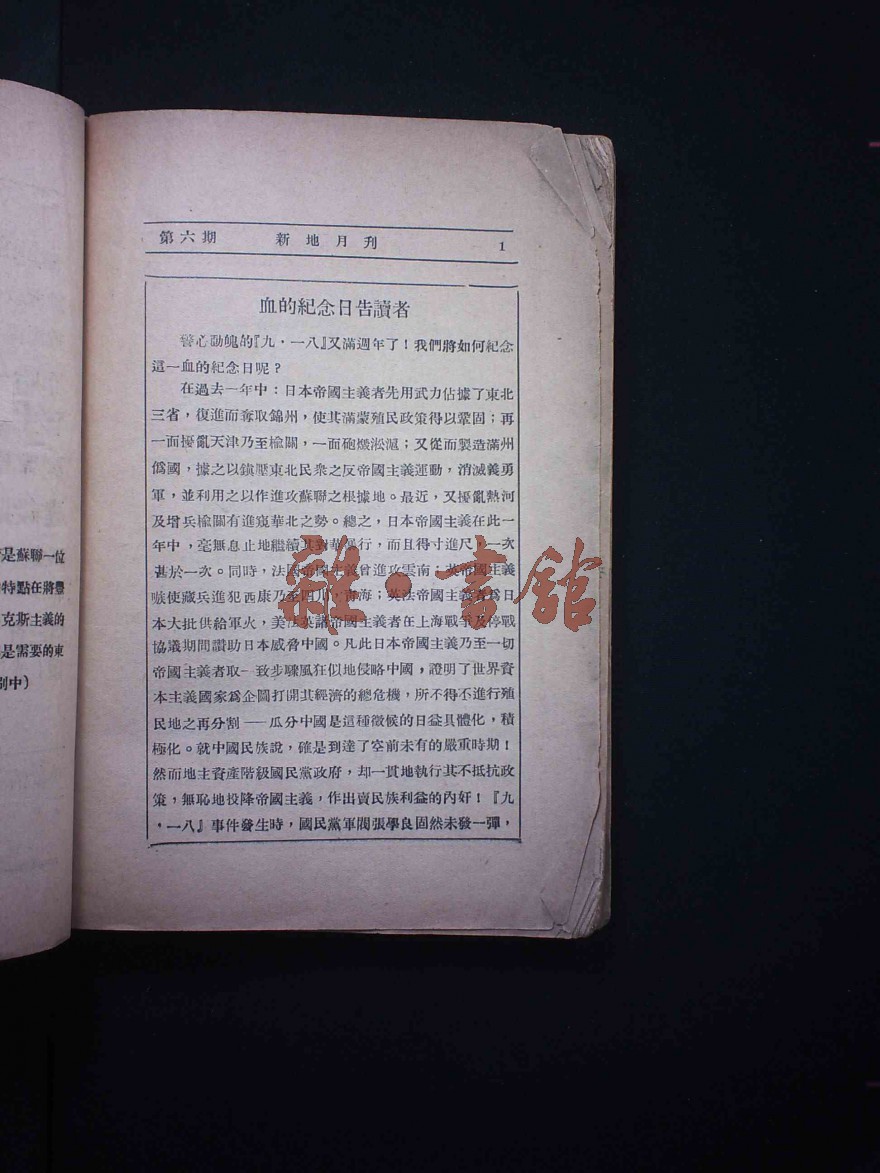 第六期 新地月刊 1
血的紀念日告讀者
警心動魄的『九·一八』又滿週年了！我們將如何紀念
這一血的紀念日呢？
在過去一年中：日本帝國主義者先用武力佔據了東北
三省，復進而奪取錦州，使其滿蒙殖民政策得以鞏固；再
一面擾亂天津乃至榆關，一面砲燬淞滬；又從而製造滿州
僞國，據之以鎭壓東北民衆之反帝國主義運動，消滅義勇
軍，並利用之以作進攻蘇聯之根據地。最近，又擾亂熱河
及增兵榆關有進窺華北之勢。總之，日本帝國主義在此一
年中，毫無息止地繼續其對華暴行，而且得寸進尺，一次
甚於一次。同時，法國帝國主義曾進攻雲南；英帝國主義
嗾使藏兵進犯西康乃至四川，青海；英法帝國主義者爲日
本大批供給軍火，美法英諸帝國主義者在上海戰爭及停戰
協議期間讚助日本威脅中國。凡此日本帝國主義乃至一切
帝國主義者取一致步驟風狂似地侵略中國，證明了世界資
本主義國家爲企圖打開其經濟的總危機，所不得不進行殖
民地之再分割——瓜分中國是這種徵候的日益具體化，積
極化。就中國民族說，確是到達了空前未有的嚴重時期！
然而地主資產階級國民黨政府，却一貫地執行其不抵抗政
策，無恥地投降帝國主義，作出賣民族利益的內奸！『九
·一八』事件發生時，國民黨軍閥張學良固然未發一彈，
是蘇聯一位
特點在將豐
克斯主義的
是需要的東
刷中）
雜·書館